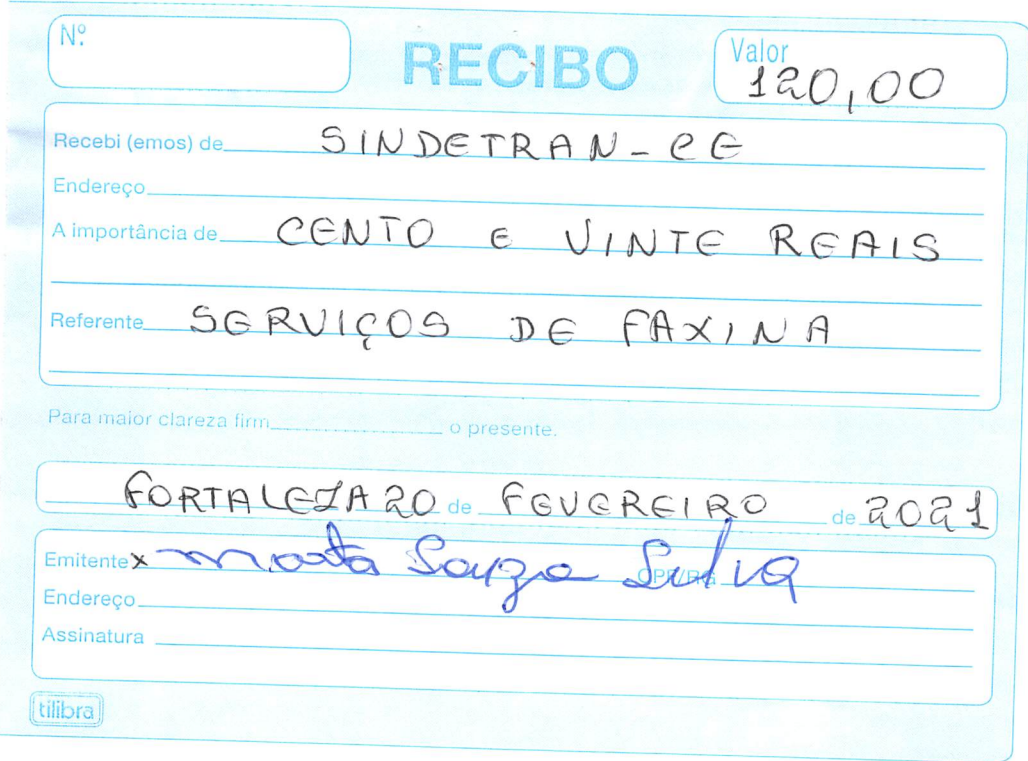 Nº
RECIBO
Valor
120,00
Recebi (emos) de SINDETRAN-CE
Endereço
A importância de CENTO E VINTE REAIS
Referente SERVIÇOS DE FAXINA
Para maior clareza firm o presente.
FORTALEZA 20 de FEVEREIRO de 2021
Emitente x Marta Souza Silva CPF/RG
Endereço
Assinatura
tilibra